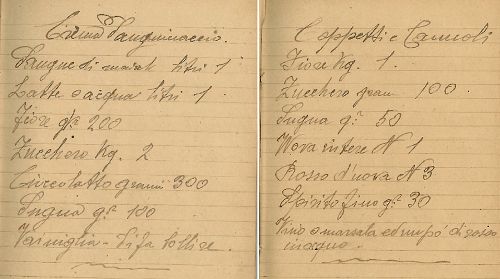 Crema Sanguinaccio.
Sangue di maial litri 1
Latte o acqua litri 1.
Fiore gr 200
Zucchero Kg. 2
Cioccolatto grammi 300
Sugna gr 100
Vainiglia - Si fa bollire.
Coppetti e Cannoli
Fiore Kg. 1.
Zucchero gram 100.
Sugna gr 50
Uova intere N 1
Rosso d'uova N 3
Spirito fino gr 30
Vino o marsala ed un po' di
in acqua.